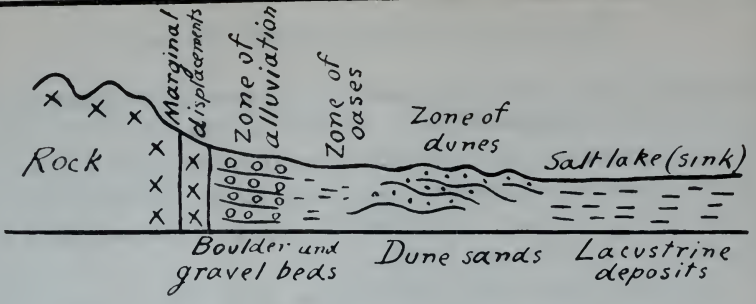 Marginal
displacements
Zone of
alluviation
Zone of
oases
Zone of
dunes
Rock
Salt lake (sink)
Boulder und
gravel beds
Dune sands
Lacustrine
deposits